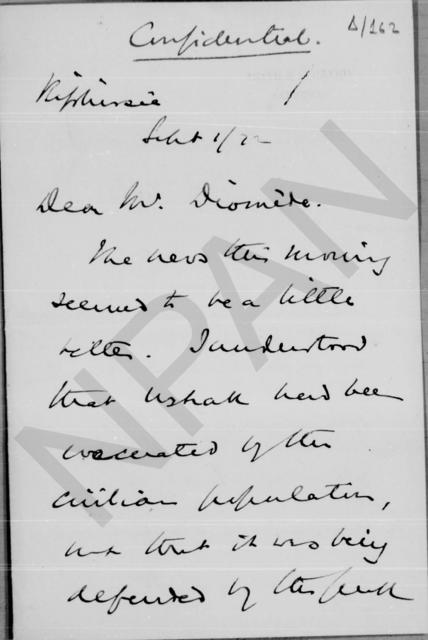 Δ/162
Confidential.
Kiphissia
Sept 1/22
Dear Mr. Diomède.
The news this morning
seemed to be a little
better. I understood
that Ushak had been
evacuated by the
civilian population,
but that it was being
defended by the
NPAN